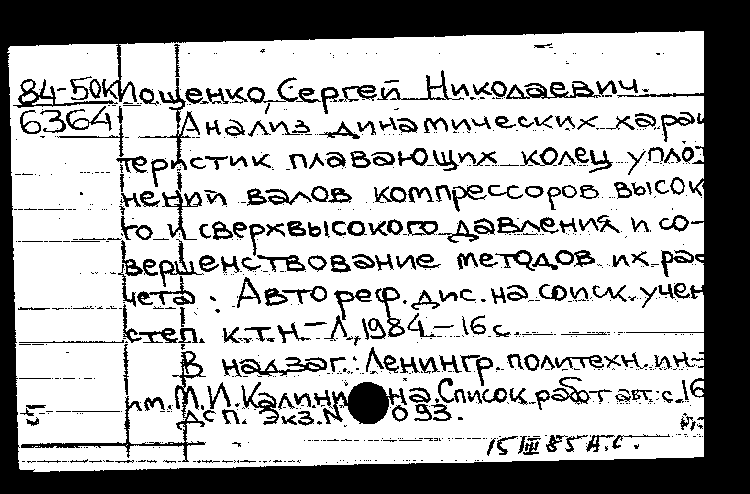 84-50К Пощенко, Сергей Николаевич.
6364 Анализ динамических харак
теристик плавающих колец упло
нений валов компрессоров высок
го и сверхвысокого давления и со-
вершенствование методов их рас
чета : Автореф. дис. на соиск. учен
степ. к.т.н. – Л, 1984. – 16 с.
В надзаг.: Ленингр. политехн. ин-
им. М.И. Калинина. Список работ авт.: с. 16
ДСП. Экз. N 093.
15 III 85 А.С.